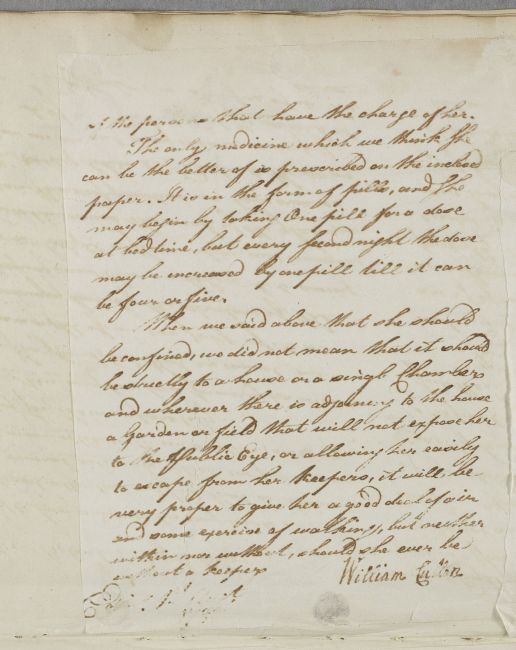 of the persons that have the charge of her.
The only medicine which we think She
can be the better of is prescribed on the inclosed
paper. It is in the form of pills, and She
may begin by taking One pill for a dose
at bedtime, but every second night the dose
may be increased by one pill till it can
be four or five.
When we said above that she should
be confined, we did not mean that it should
be strictly to a house or a single Chamber
and wherever there is adjoining to the house
a Garden or field that will not expose her
to the Public Eye, or allowing her easily
to escape from her keepers, it will be
very proper to give her a good deal of air
and some exercise of walking, but neither
within nor without, should she ever be
without a keeper
William Cullen